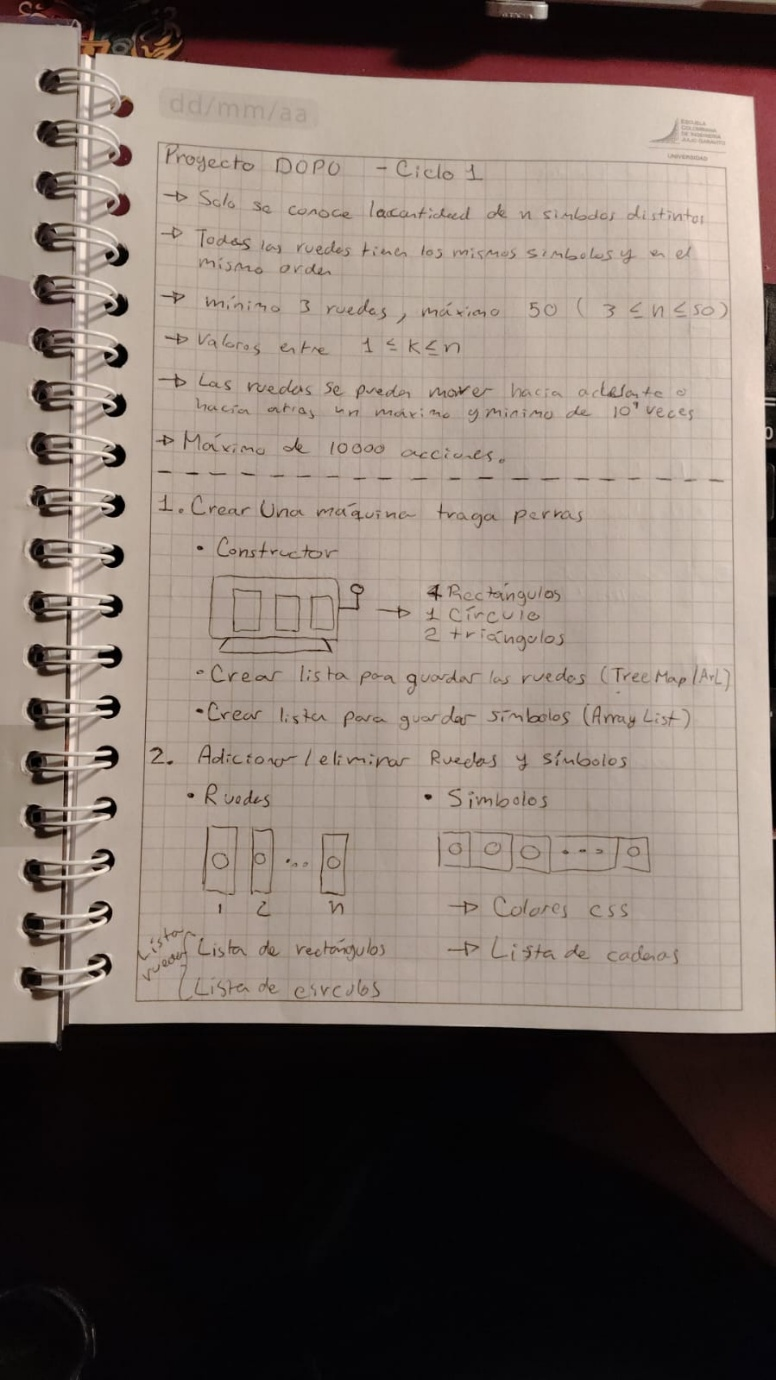 dd/mm/aa
ESCUELA
COLOMBIANA
DE INGENIERÍA
JULIO GARAVITO
UNIVERSIDAD
Proyecto DOPO - Ciclo 1
→ Solo se conoce la cantidad de n simbolos distintos
→ Todas las ruedas tienen los mismos simbolos y en el
mismo orden
→ mínimo 3 ruedas, máximo 50 ( 3 ≤ n ≤ 50)
→ Valores entre 1 ≤ k ≤ n
→ Las ruedas se pueden mover hacia adelante o
hacia atras un máximo y minimo de 10⁹ veces
→ Máximo de 10000 acciones.
1. Crear Una máquina traga perras
• Constructor
→ 4 Rectángulos
1 Círculo
2 triángulos
• Crear lista para guardar las ruedas (TreeMap/ArL)
• Crear lista para guardar símbolos (Array List)
2. Adicionar/eliminar Ruedas y símbolos
• Ruedas
• Símbolos
...
1 2 n
→ Colores css
Lista
ruedas
Lista de rectángulos
→ Lista de cadenas
Lista de círculos